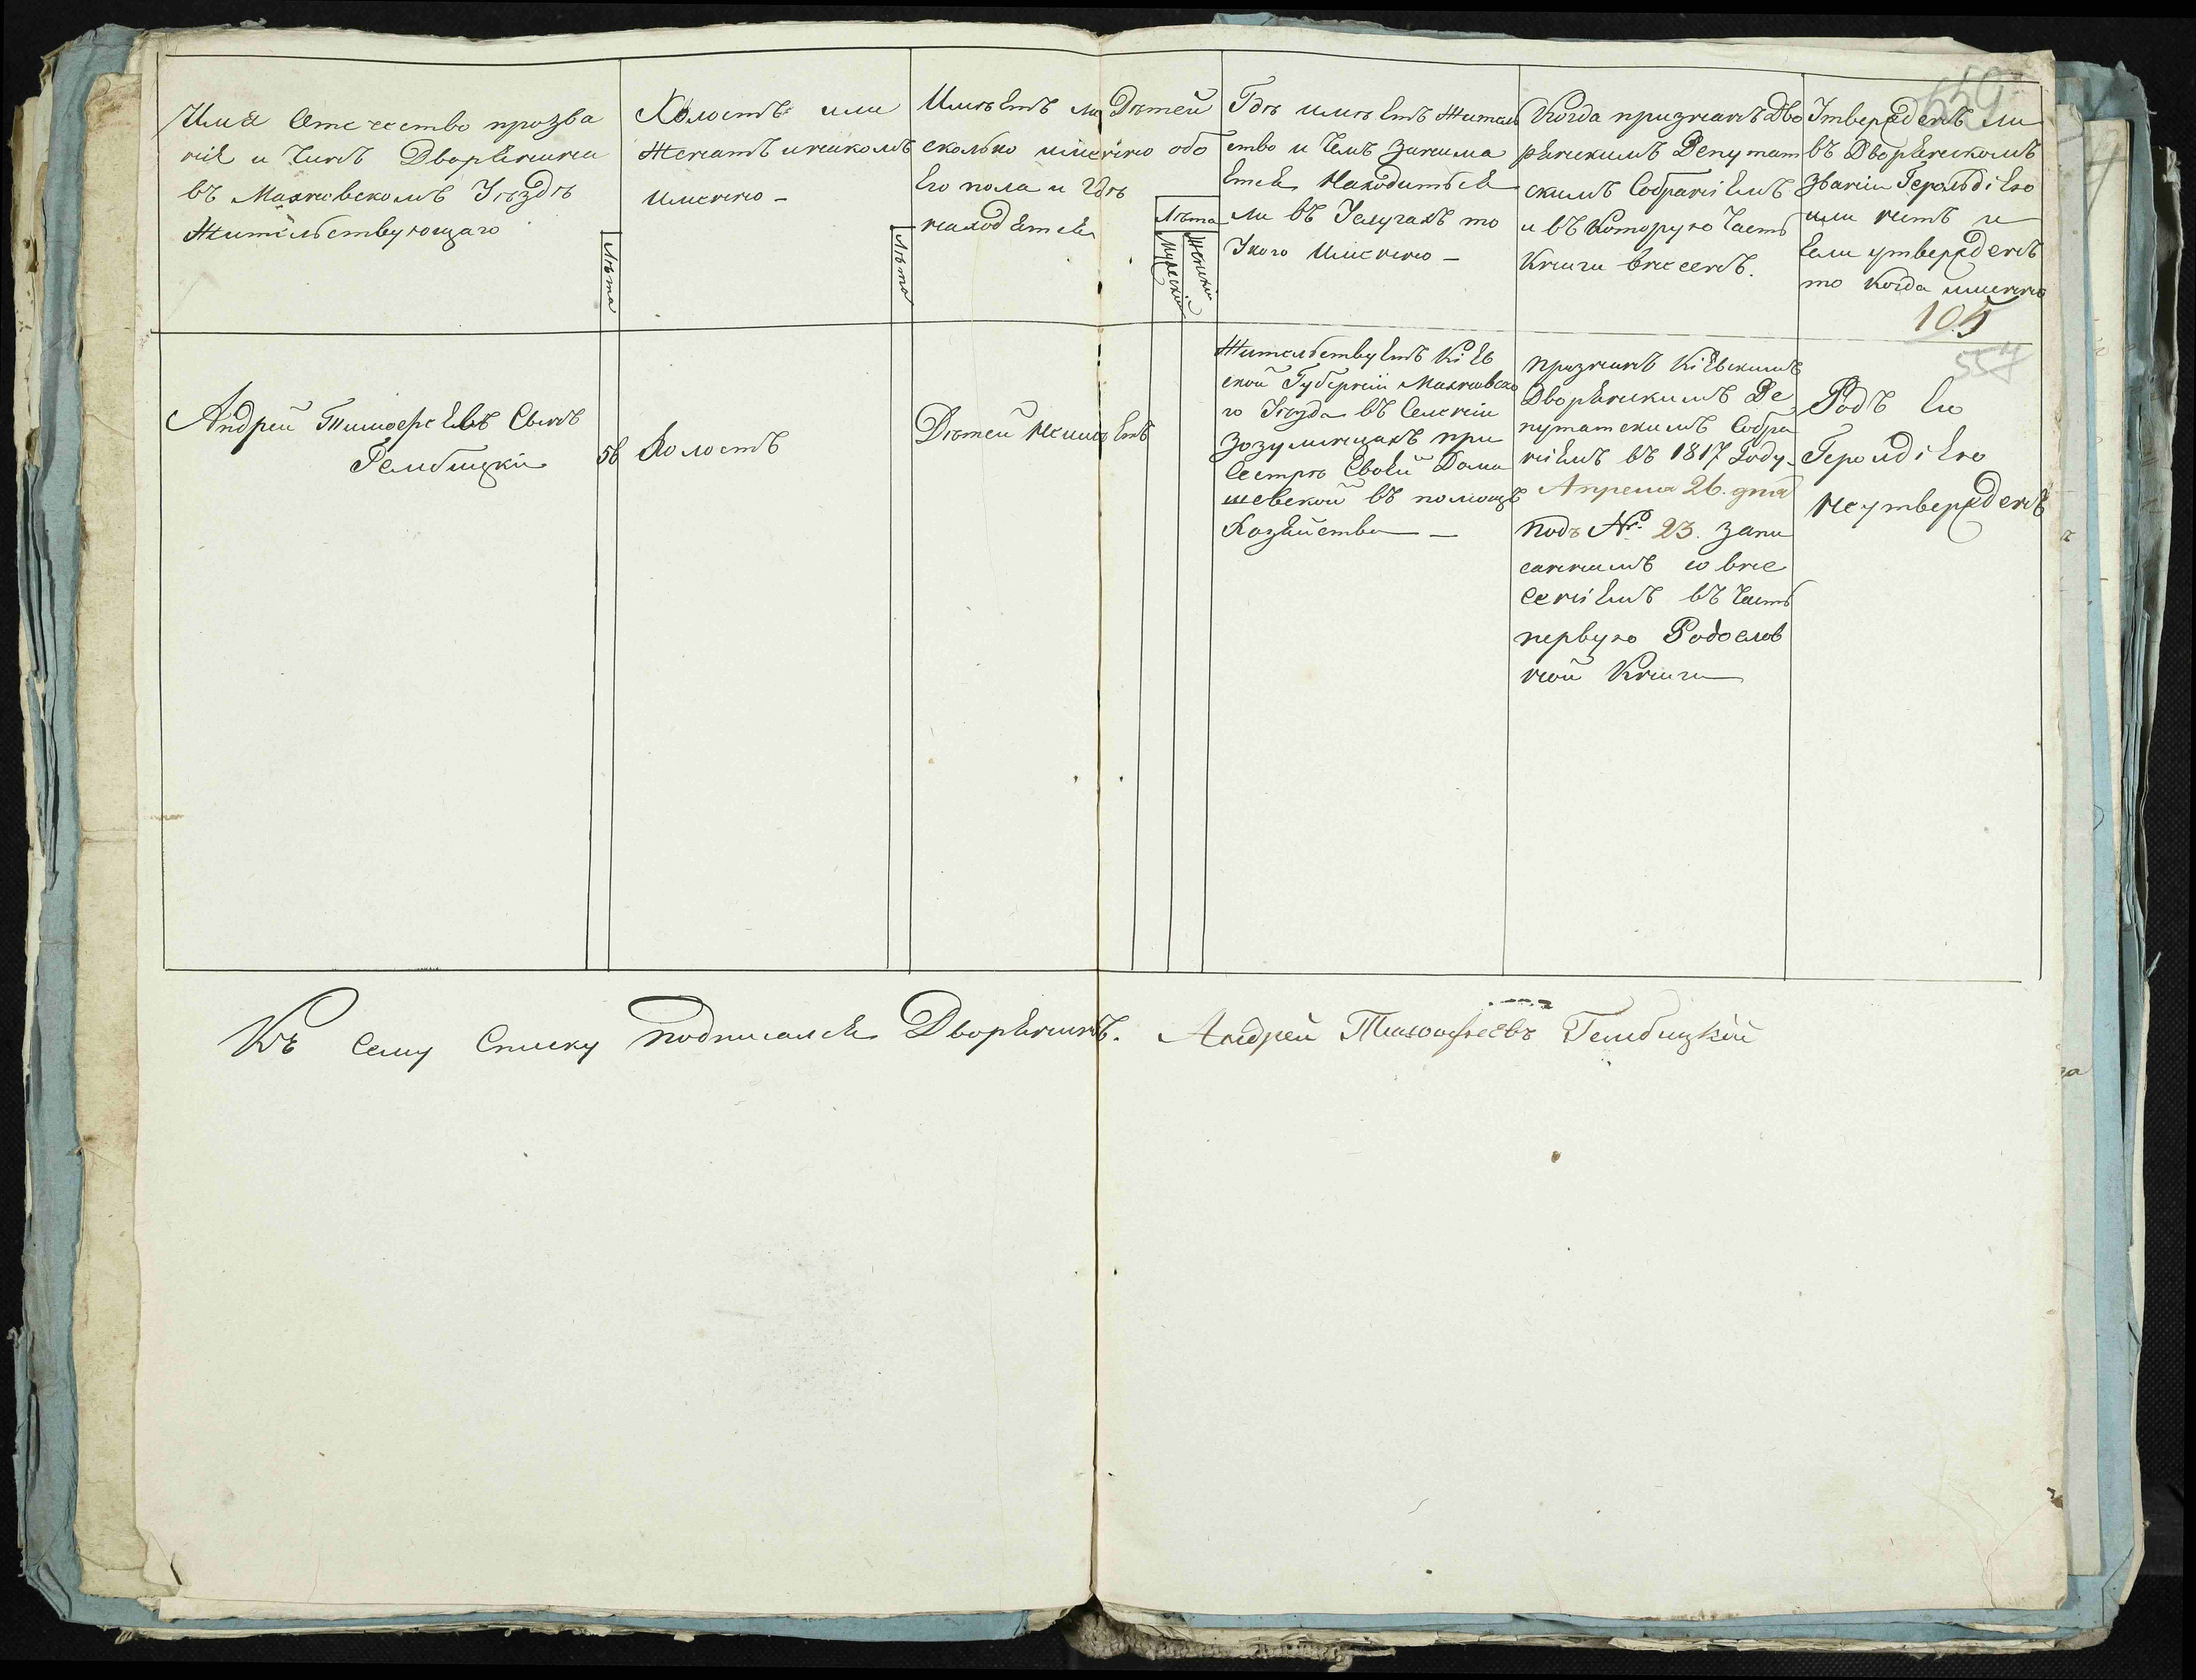 659
Имя Отчество прозва
ніе и Чинъ Дворянина
въ Махновскомъ Уѣздѣ
Жительствующаго
Лѣта
Холостъ или
Женатъ и на комъ
Имянно -
Лѣта
Имѣетъ ли Дѣтей
сколько имянно обо
Его пола и Гдѣ
находятся
Лѣта
Мужескій
Женскій
Гдѣ имѣетъ Житель
ство и Чемъ Занима
ется Находиться
ли въ Услугахъ то
У кого Имянно -
Когда признанъ Дво
рянскимъ Депутат
скимъ Собраніемъ
и въ Которую Часть
Книги внесенъ.
Утвержденъ ли
въ Дворянскомъ
Званіи Герольдіею
или нетъ и
Если утвержденъ
то Когда имянно
105
557
Андрей Тимофеевъ Сынъ
Гембицкій
56
Холостъ
Дѣтей Не имѣетъ
Жительствуетъ Кіев
ской Губерніи Махновско
го Уѣзда въ Селеніи
Зозулинцахъ при
Сестрѣ Своей Дома
шевской въ помощь
Хозяйства -
признанъ Кіевскимъ
Дворянскимъ Де
путатскимъ Собра
ніемъ въ 1817 Году.
Апреля 26. дня
подъ №. 23. запи
саннымъ со вне
сеніемъ въ Часть
первую Родослов
ной Книги
Родъ Его
Герольдіею
Не утвержденъ
Къ Сему Списку подписался Дворянинъ. Андрей Тимофеевъ Гембицкій